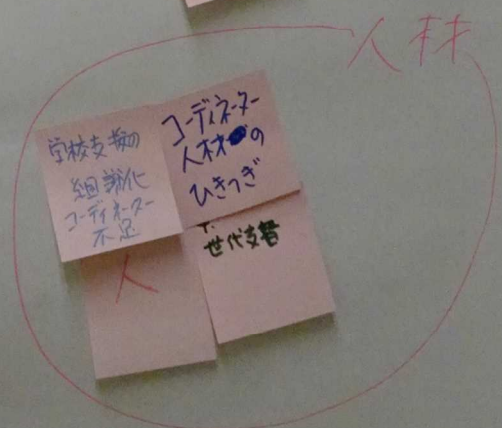 人材
学校支援の
組織化
コーディネーター
不足
コーディネーター
人材の
ひきつぎ
人
世代支替